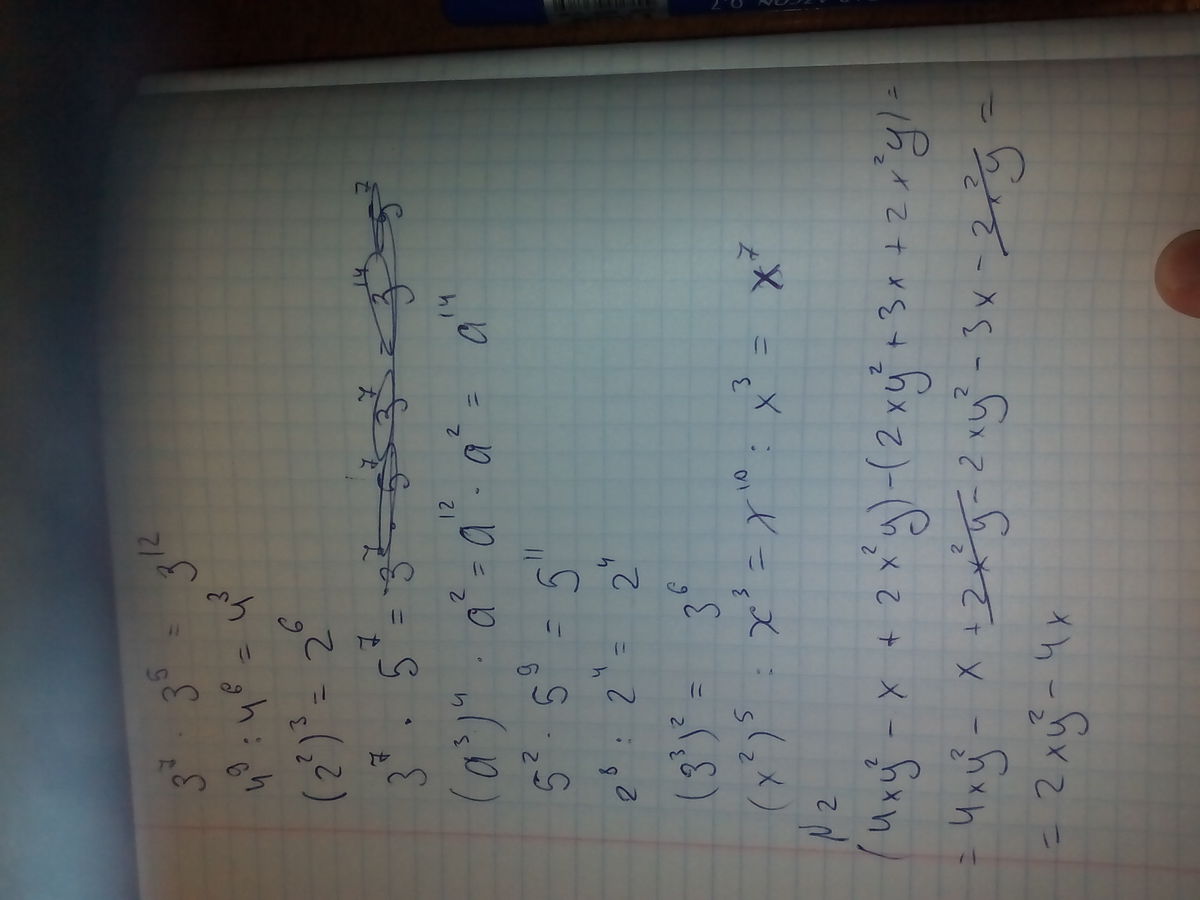 3⁷ · 3⁵ = 3¹²
4⁹ : 4⁶ = 4³
(2²)³ = 2⁶
3⁷ · 5⁷ =
(a³)⁴ · a² = a¹² · a² = a¹⁴
5² · 5⁹ = 5¹¹
2⁸ : 2⁴ = 2⁴
(3³)² = 3⁶
(x²)⁵ : x³ = x¹⁰ : x³ = x⁷
N2
(4xy² - x + 2x²y) - (2xy² + 3x + 2x²y) =
= 4xy² - x + 2x²y - 2xy² - 3x - 2x²y =
= 2xy² - 4x